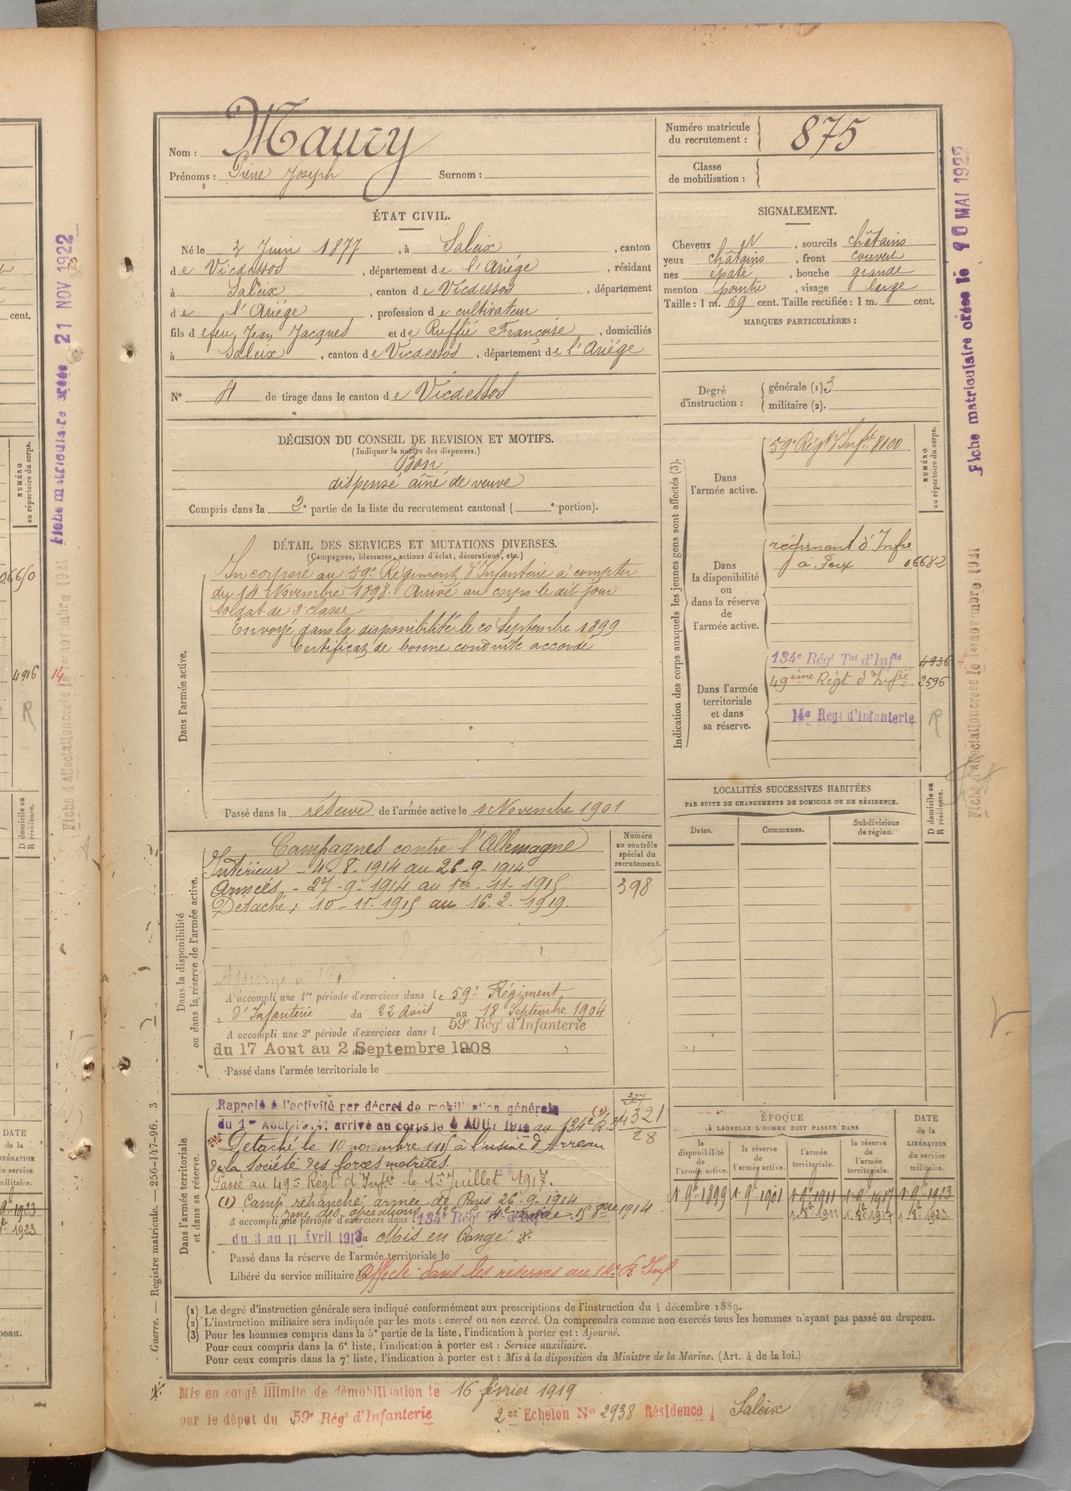 Nom : Maury
Prénoms : Pierre Joseph Surnom :
Numéro matricule du recrutement : 875
Classe de mobilisation :
ÉTAT CIVIL.
Né le 2 Juin 1877, à Saleix, canton
de Vicdessos, département de l'Ariége, résidant
à Saleix, canton de Vicdessos, département
de l'Ariége, profession de cultivateur
fils de feu Jean Jacques et de Ruffié Françoise, domiciliés
à Saleix, canton de Vicdessos, département de l'Ariége
N° 4 de tirage dans le canton de Vicdessos
SIGNALEMENT.
Cheveux N, sourcils châtains
yeux châtains, front couvert
nez épaté, bouche grande
menton pointu, visage large
Taille : 1 m. 69 cent. Taille rectifiée : 1 m. cent.
MARQUES PARTICULIÈRES :
Degré d'instruction : générale (1). 3
militaire (2).
DÉCISION DU CONSEIL DE REVISION ET MOTIFS.
(Indiquer la nature des dispenses.)
Bon
dispensé aîné de veuve
Compris dans la 2e partie de la liste du recrutement cantonal ( e portion).
DÉTAIL DES SERVICES ET MUTATIONS DIVERSES.
(Campagnes, blessures, actions d'éclat, décorations, etc.)
Dans l'armée active.
Incorporé au 59e Régiment d'Infanterie à compter
du 14 Novembre 1898. Arrivé au corps le dit jour
soldat de 2e classe
Envoyé dans la disponibilité le 20 Septembre 1899
Certificat de bonne conduite accordé
Passé dans la réserve de l'armée active le 1 Novembre 1901
Indication des corps auxquels les jeunes gens sont affectés (3).
NUMÉRO au répertoire du corps.
Dans l'armée active.
59e Régt d'Infie 8100
Dans la disponibilité ou dans la réserve de l'armée active.
régiment d'Infie
à Foix 06682
Dans l'armée territoriale et dans sa réserve.
134e Régt Tal d'Infie 4936
49ème Régt d'Infie 2596
14e Régt d'Infanterie R
LOCALITÉS SUCCESSIVES HABITÉES
PAR SUITE DE CHANGEMENTS DE DOMICILE OU DE RÉSIDENCE.
Dates. Communes. Subdivisions de région. D domicile ou R résidence.
Dans la disponibilité ou dans la réserve de l'armée active.
Numéro au contrôle spécial du recrutement.
398
Campagnes contre l'Allemagne
Intérieur - 4-8-1914 au 26-9-1914
Armées - 27-9-1914 au 1er-11-1915.
Détaché : 10-11-1915 au 16-2-1919.
A accompli une 1re période d'exercices dans le 59e Régiment
d'Infanterie du 22 Août au 18 Septembre 1904
A accompli une 2e période d'exercices dans l 59e Régt d'Infanterie
du 17 Aout au 2 Septembre 1908
Passé dans l'armée territoriale le
Dans l'armée territoriale et dans sa réserve.
Rappelé à l'activité par décret de mobilisation générale
du 1er Août 1914, arrivé au corps le 4 AOUT 1914 au 134e R
4321
28
Détaché le 10 novembre 1915 à l'usine d'Arreau
de la Société des forces motrices.
Passé au 49e Régt d'Infie le 1er Juillet 1917.
(1) Camp retranché armée de Paris 26-9-1914
A accompli une période d'exercices dans l 134e Régt Tal d'Infie
du 3 au 11 Avril 1913 Mis en Congé
Passé dans la réserve de l'armée territoriale le
Libéré du service militaire le
Affecté dans les réserves au 14e R Inf
ÉPOQUE À LAQUELLE L'HOMME DOIT PASSER DANS
la disponibilité de l'armée active. la réserve de l'armée active. l'armée territoriale. la réserve de l'armée territoriale. DATE de la LIBÉRATION du service militaire.
1 9e 1899 1 9e 1901 1 9e 1911 1 9e 1917 1 9e 1923
1 8e 1911 1 8e 1917 1 8e 1923
(1) Le degré d'instruction générale sera indiqué conformément aux prescriptions de l'instruction du 4 décembre 1889.
(2) L'instruction militaire sera indiquée par les mots : exercé ou non exercé. On comprendra comme non exercés tous les hommes n'ayant pas passé au drapeau.
(3) Pour les hommes compris dans la 5e partie de la liste, l'indication à porter est : Ajourné.
Pour ceux compris dans la 6e liste, l'indication à porter est : Service auxiliaire.
Pour ceux compris dans la 7e liste, l'indication à porter est : Mis à la disposition du Ministre de la Marine. (Art. 4 de la loi.)
Mis en congé illimité de démobilisation le 16 février 1919
par le dépôt du 59e Régt d'Infanterie 2er Echelon N° 2938 Résidence Saleix
Guerre. — Registre matricule. — 256-147-96. 3
Fiche matriculaire créée le 10 MAI 1922
Fiche d'affectation créée le 1er novembre 1921
Fiche matriculaire créée 21 NOV 1922
Fiche d'affectation créée le 1er novembre 1921
4916
14
R